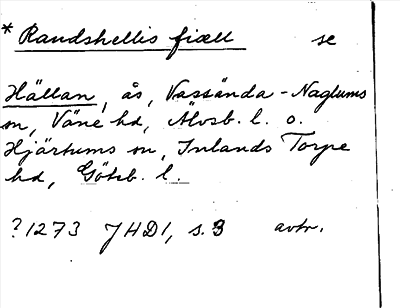 * Randshellis fiæll se
Hällan, ås, Vassända-Naglums
sn, Väne hd, Älvsb. l. o.
Hjärtums sn, Inlands Torpe
hd, Göteb. l.
? 1273 JHD1, s. 3 avtr.